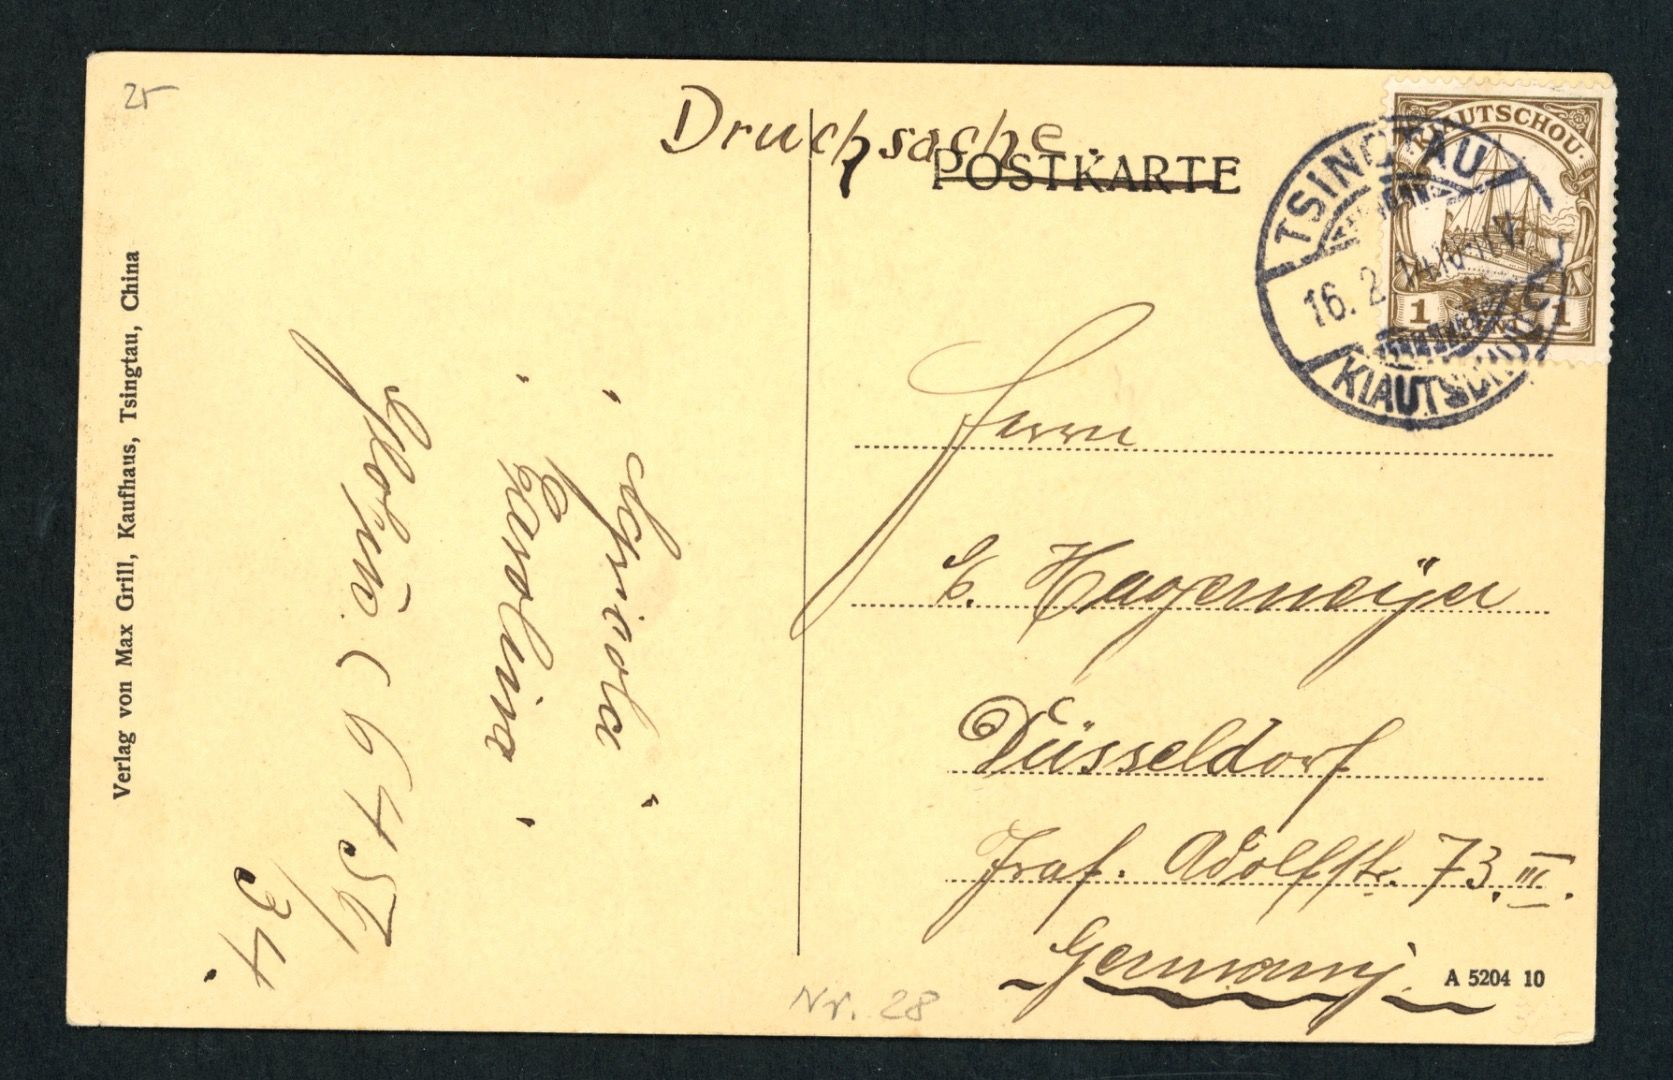 25
Druchsache.
POSTKARTE
KIAUTSCHOU
1 1
TSINGTAU
16. 2. 14 10-11 V.
KIAUTSCHOU
Verlag von Max Grill, Kaufhaus, Tsingtau, China
Herrn
E. Hagemeijer
Düsseldorf
Graf. Adolfstr. 73. III.
Germany.
A 5204 10
Nr. 28
Carolina
34.